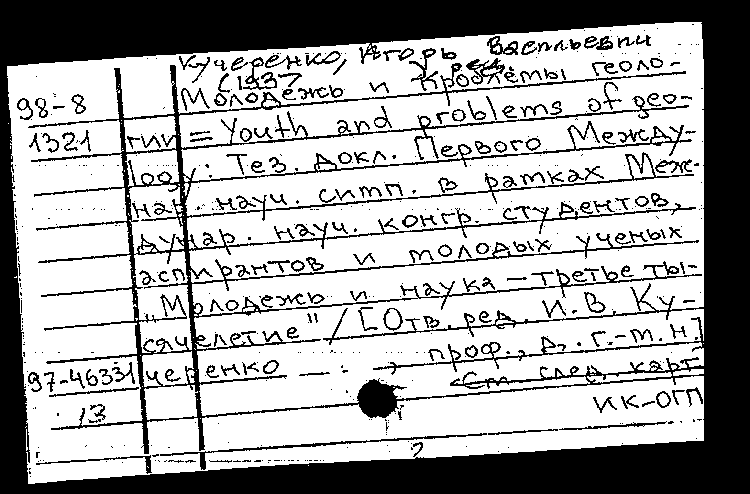 Кучеренко, Игорь Васильевич
(1937 ред.
98-8 Молодежь и проблемы геоло-
1321 гии = Youth and problems of geo-
logy: Тез. докл. Первого Между-
нар. науч. симп. в рамках Меж-
дунар. науч. конгр. студентов,
аспирантов и молодых ученых
„Молодежь и наука — третье ты-
сячелетие" / [Отв. ред. И.В. Ку-
97-46331 черенко — . → проф., д. г.-м. н.]
См. след. карт.
13 ИК-ОГП
2